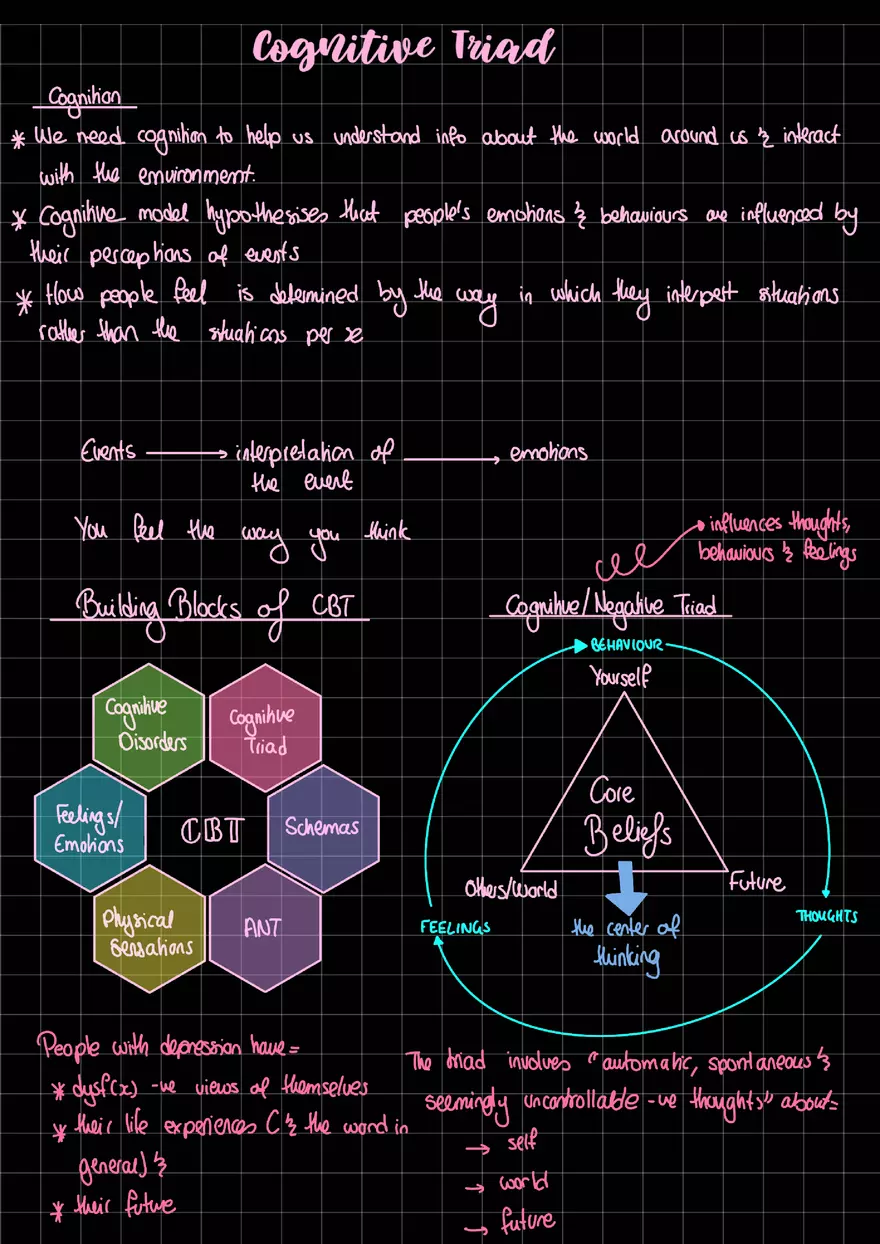 Cognitive Triad
Cognition
* We need cognition to help us understand info about the world around us & interact
with the environment.
* Cognitive model hypothesises that people's emotions & behaviours are influenced by
their perceptions of events
* How people feel is determined by the way in which they interpert situations
rather than the situations per se
Events → interpretation of → emotions
the event
You feel the way you think
influences thoughts,
behaviours & feelings
Building Blocks of CBT
Cognitive
Disorders
Cognitive
Triad
Feelings/
Emotions
CBT
Schemas
Physical
Sensations
ANT
Cognitive/Negative Triad
BEHAVIOUR
Yourself
Core
Beliefs
Others/World
Future
FEELINGS
THOUGHTS
the center of
thinking
People with depression have=
* dysf(x) -ve views of themselves
* their life experiences (& the word in
general) &
* their future
The triad involves "automatic, spontaneous &
seemingly uncontrollable -ve thoughts" about=
→ self
→ world
→ future